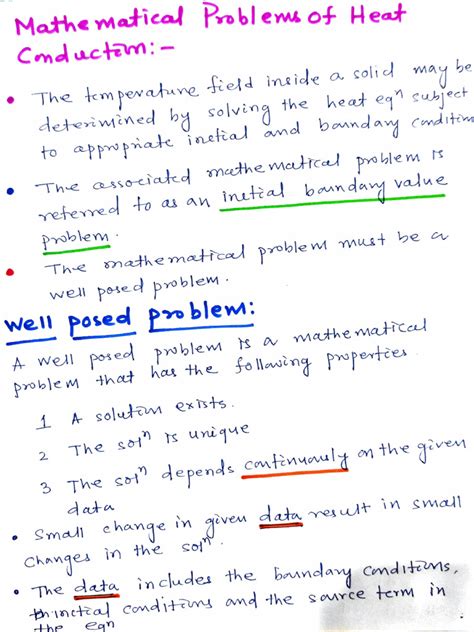 Mathematical Problems of Heat
Conduction:-
• The temperature field inside a solid may be
determined by solving the heat eqⁿ subject
to appropriate inetial and boundary condition
• The associated mathematical problem is
referred to as an inetial boundary value
problem.
• The mathematical problem must be a
well posed problem.
Well posed problem:
A well posed problem is a mathematical
problem that has the following properties
1 A solution exists.
2 The solⁿ is unique
3 The solⁿ depends continuously on the given
data
• Small change in given data result in small
changes in the solⁿ.
• The data includes the boundary conditions,
inetial conditions and the source term in
the eqn